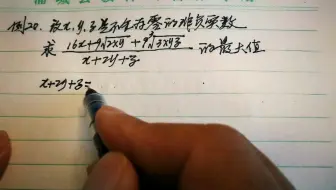 例20. 设x,y,z是不全为零的非负实数
求 (16x+9√(2xy)+9∛(3xyz))/(x+2y+z) 的最大值
x+2y+z=